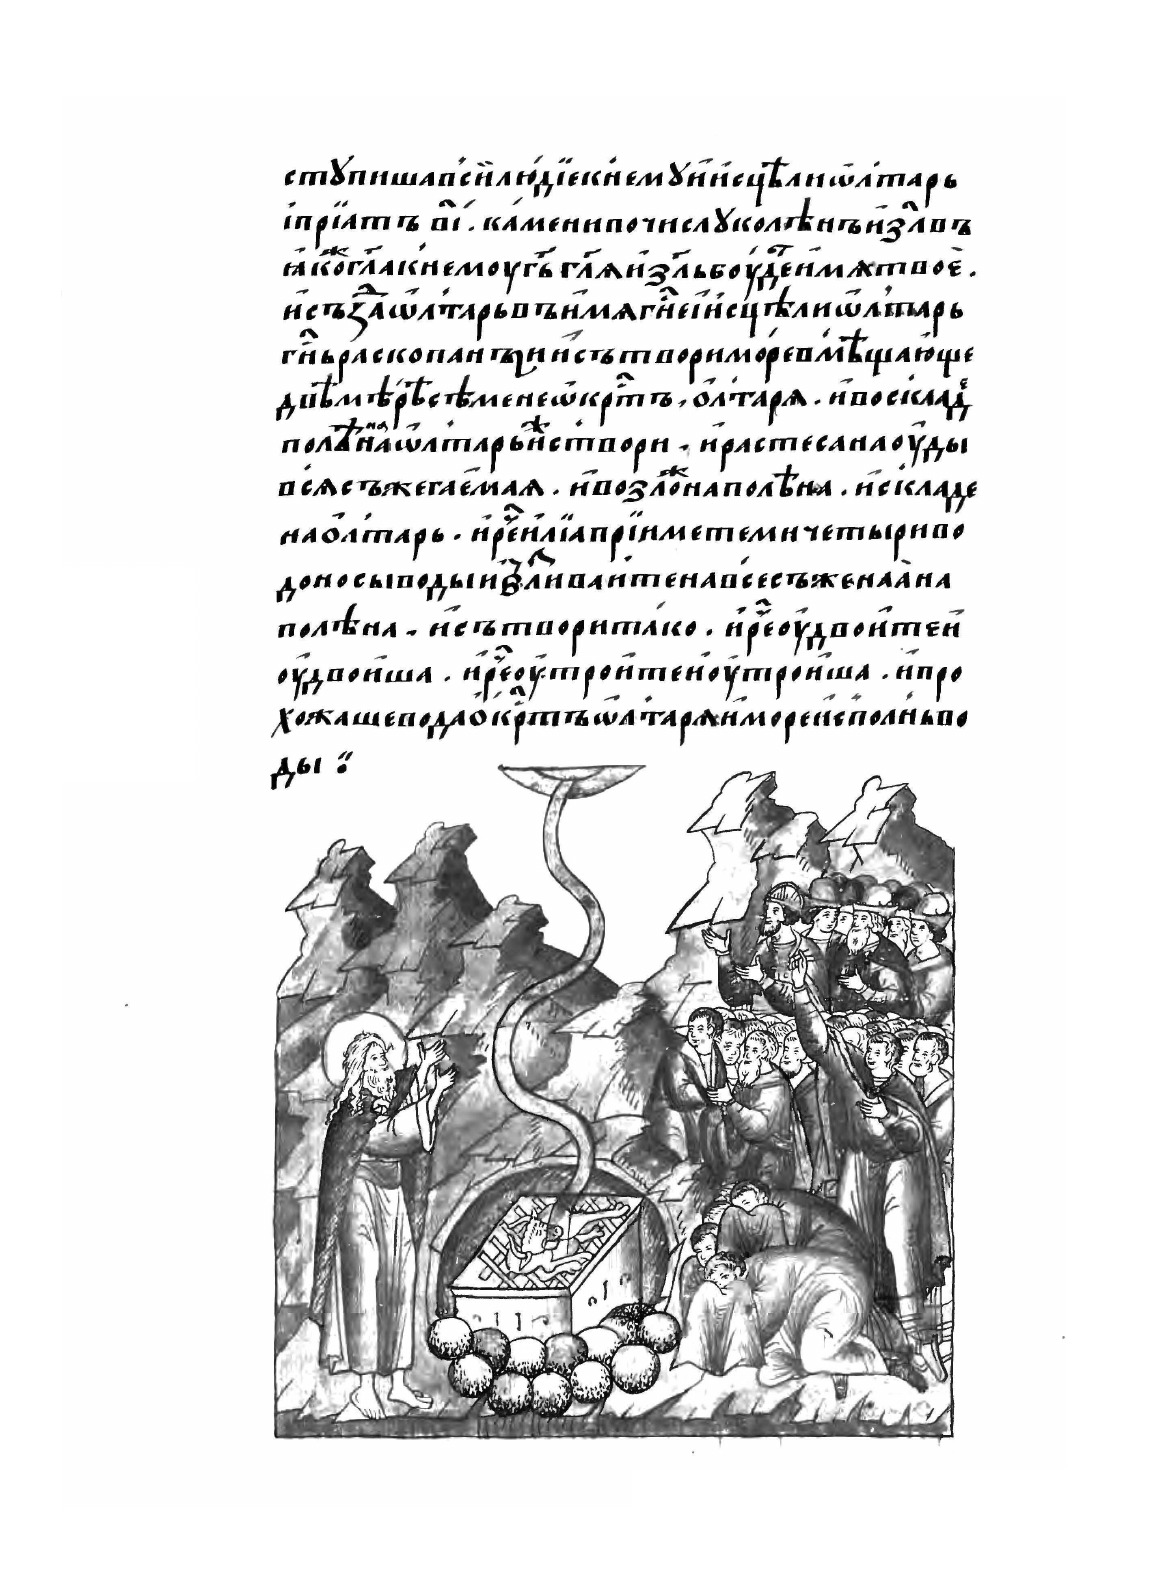 стꙋпишавсѝлю́дїекнемꙋ̀ѝисцѣлиѡ҆лта́рь
і҆прїѧ́тъ в҃і. ка́мениипочислꙋколѣнъи҆зл҃въ
ꙗ҆́кожегл҃акнемоугь҃ гл҃ѧи҆зл҃ьбоу́детъи҆мѧтвоѐ.
и҆създа̀ѡ҆лта́рьвъи҆́мѧгн҃еи҆и҆сцѣлиѡ҆лта́рь
гн҃ьраскопанныи҆ и҆сътворимо́ревмѣща́юще
двѣмѣ́рѣсѣ́менеѡ҆́крⷭ҇тъ, ѻ҆лтарѧ̀. и҆воскладѐ
полѣнанаѡ҆лта́рьꙗ҆жесⸯтвори. и҆растесанаоу҆́ды
всѧ҄съжега́емаѧ. и҆возложинаполѣна. и҆складе
наѻ҆лта́рь. и҆рече҆и҆лїапрїи҆метемичетыриво
доносыводыи҆взлива́итенавсесъжена́анна
полѣна. и҆сътворита́ко. и҆речеоу҆двои҆теи҆
оу҆двои҆ша. и҆речеоу҆трои҆теи҆оу҆трои҆ша. и҆про
хожашеводаѻ҆́крⷭ҇тъѡ҆лта́рѧи҆мо́реи҆спо́лньво
ды :